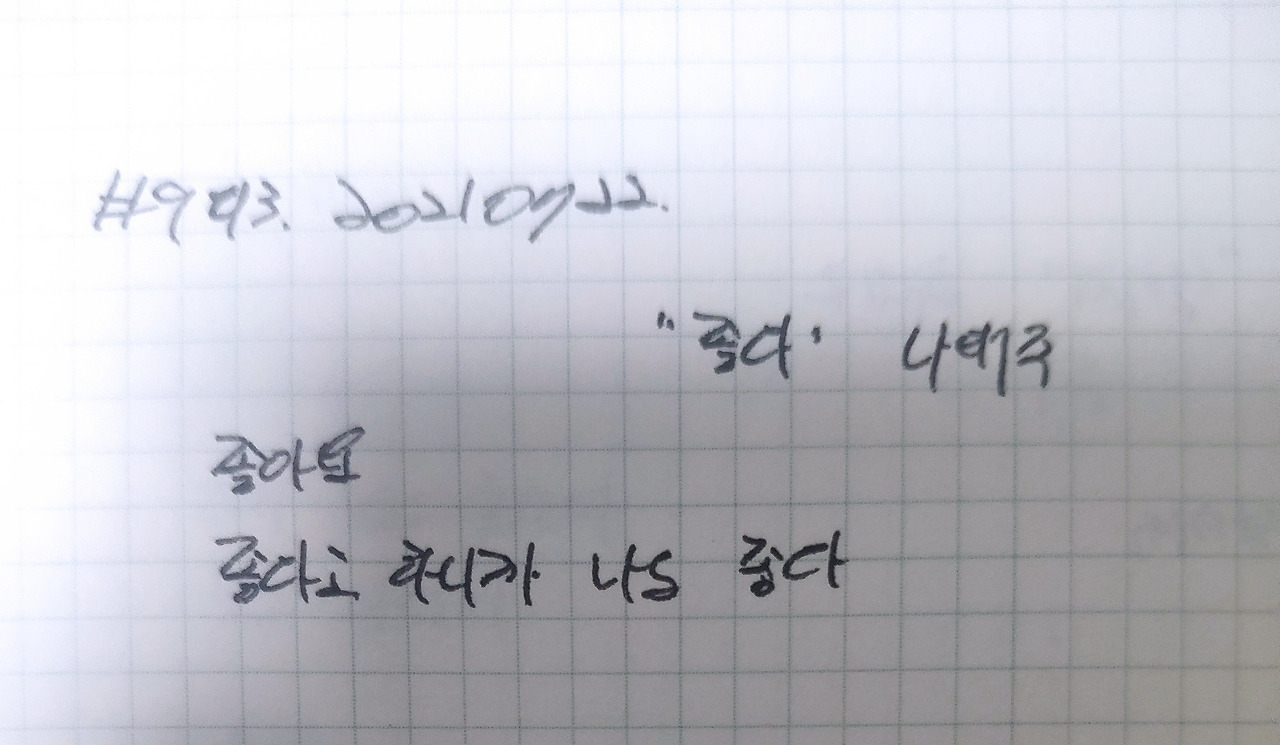 #9기3. 20210722.
"좋다" 나태주
좋아요
좋다고 하니까 나도 좋다